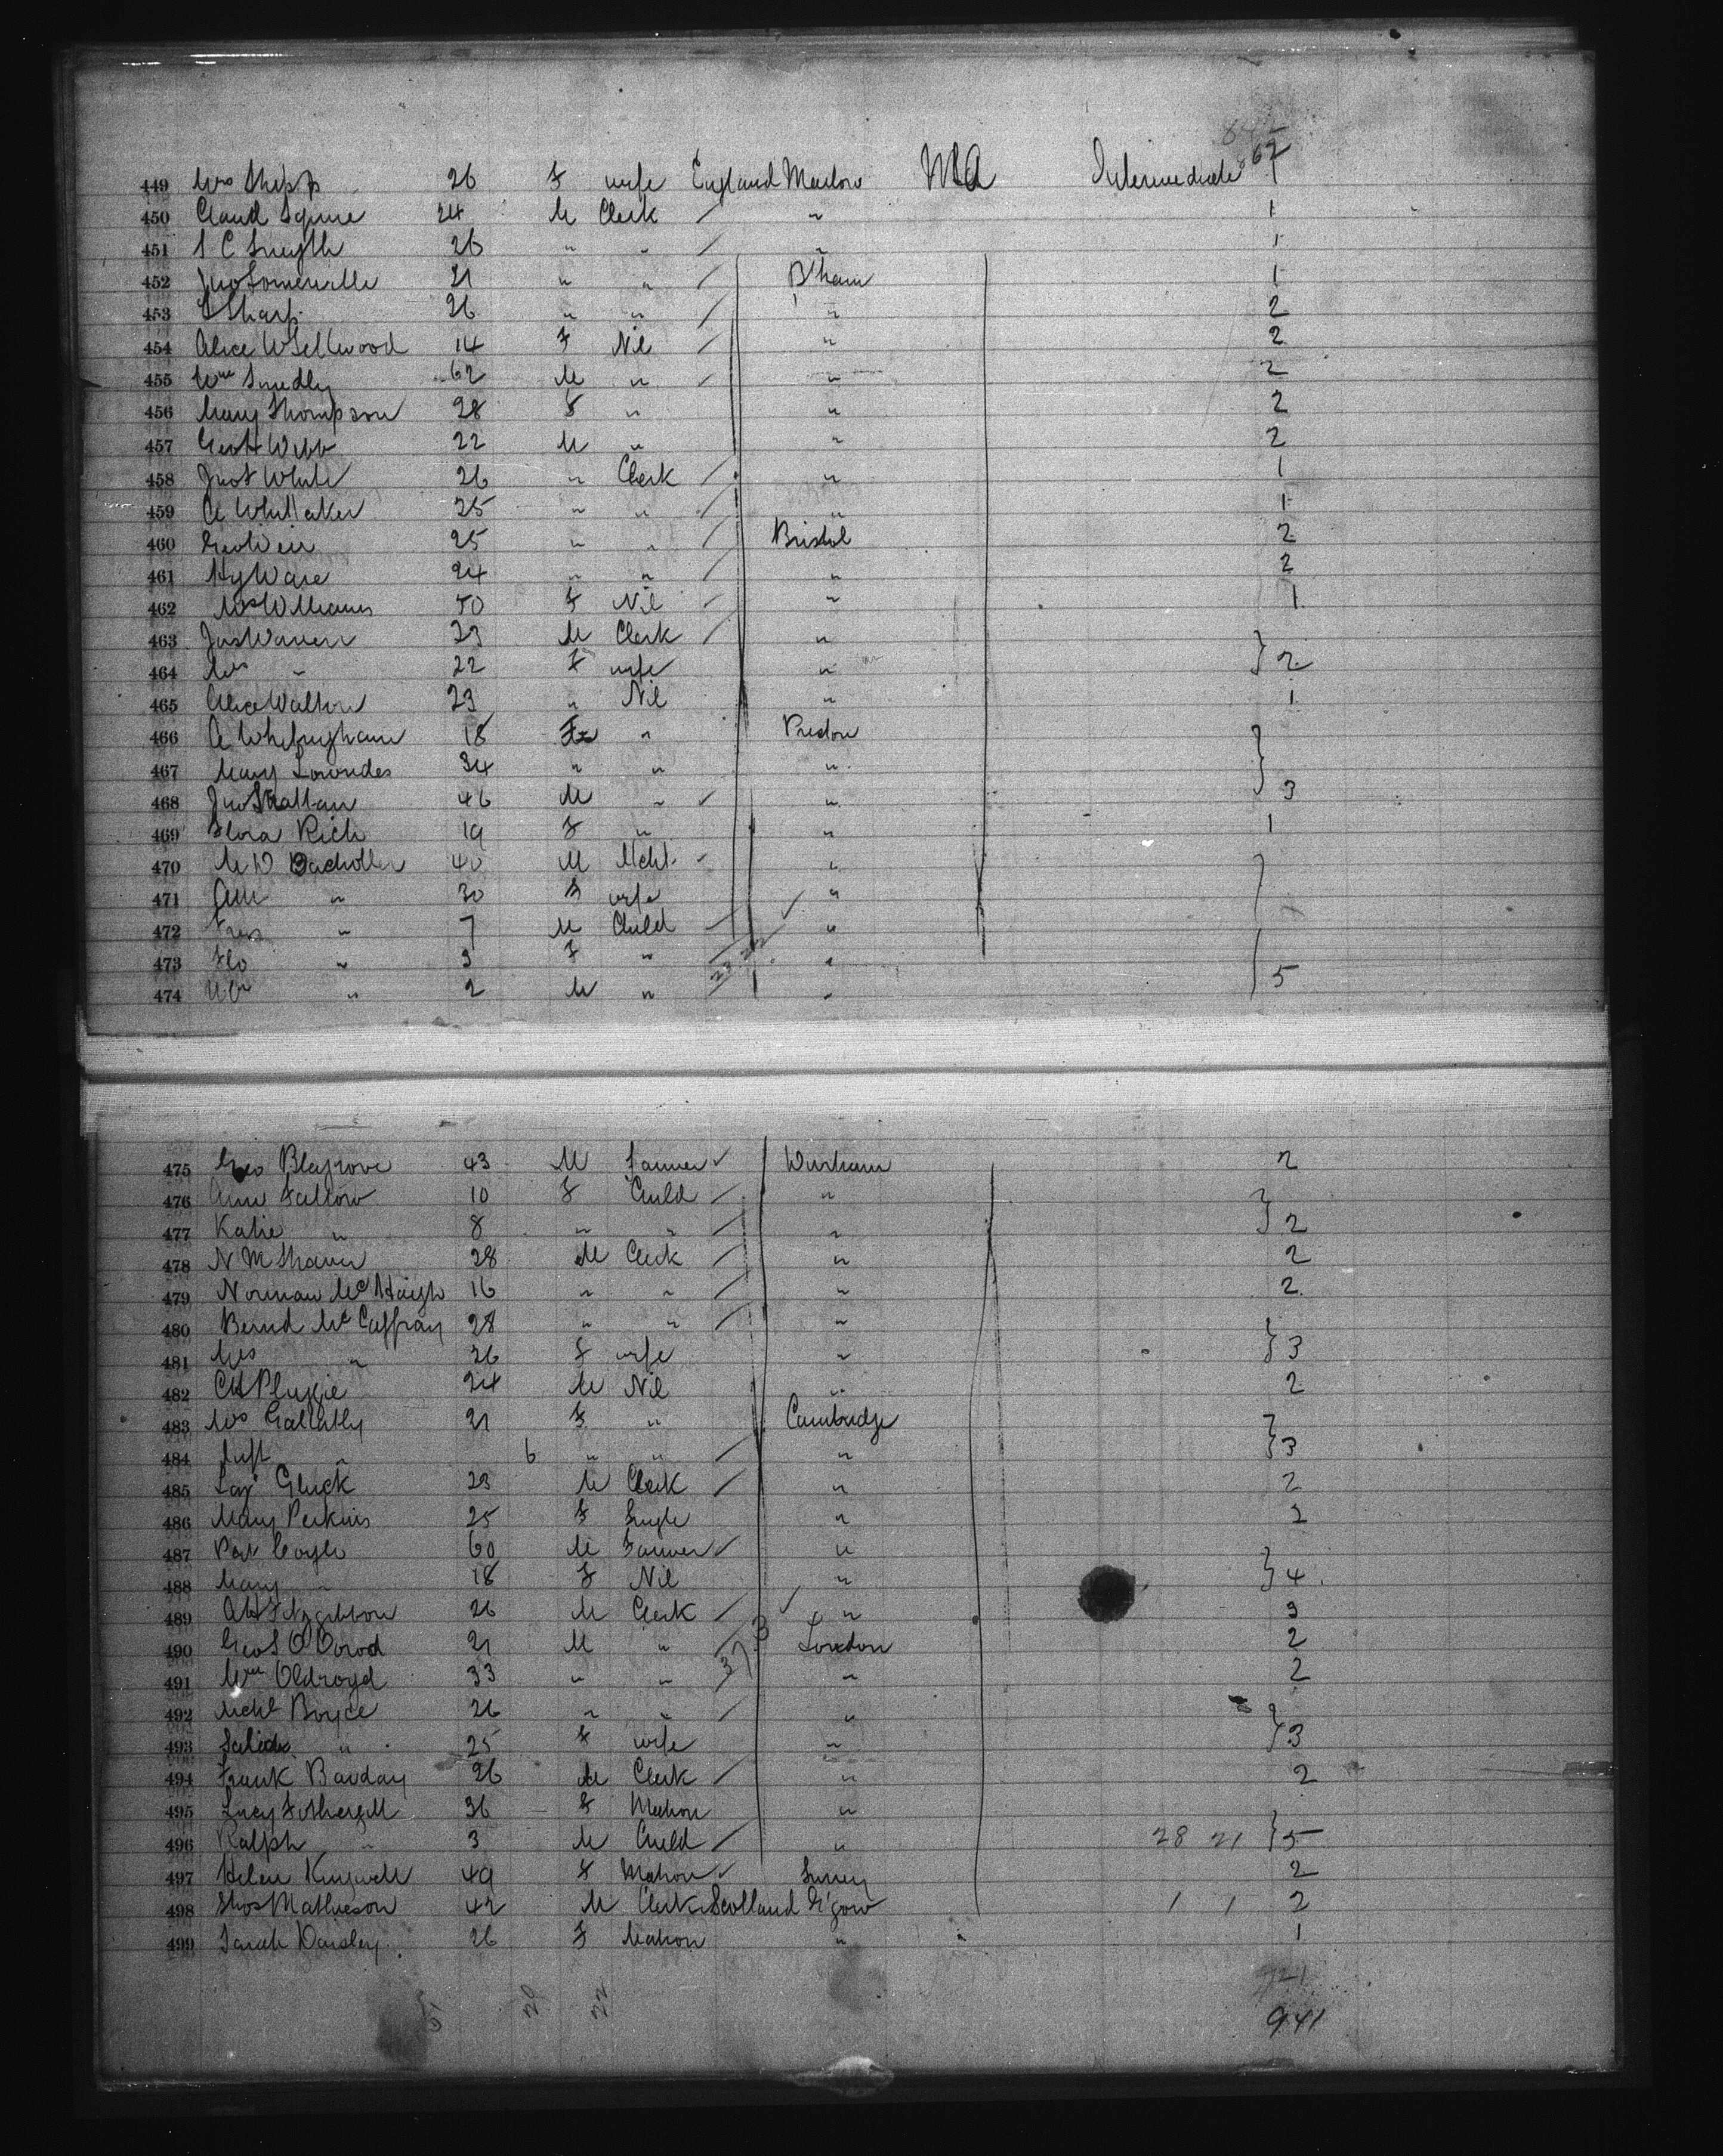 862
449 Mrs Shipp 26 F wife England Marlow USA Intermediate 1
450 Claud Squire 24 M Clerk / " 1
451 S C Smyth 26 " " / " 1
452 Jno Somerville 21 " " / B'ham 1
453 Sharp 26 " " / " 2
454 Alice W Sellwood 14 F Nil / " 2
455 Wm Smedly 62 M " / " 2
456 Mary Thompson 28 F " " 2
457 Geo H Webb 22 M " " 2
458 Jno S White 26 " Clerk / " 1
459 A Whittaker 25 " " / " 1
460 Geo Weir 25 " " / Bristol 2
461 Hy Ware 24 " " / " 2
462 Mrs Williams 50 F Nil / " 1
463 Jas Warren 23 M Clerk / "
464 Mrs " 22 F wife " } 2
465 Alice Walton 23 " Nil " 1
466 A Whitingham 18 F " Preston
467 Mary Lowndes 34 " " "
468 Jno Strattan 46 M " " } 3
469 Flora Rich 19 F " " 1
470 M D Bacholler 40 M Mcht "
471 Ann " 30 F wife "
472 " 7 M Child "
473 Flo " 3 F " "
474 Wm " 2 M " " 5
475 Geo Blagrove 43 M farmer Durham 2
476 Ann Fallow 10 F Child / "
477 Katie " 8 " " / " } 2
478 N M Shaver 28 M Clerk / " 2
479 Norman McHaigh 16 " " / " 2
480 Bernd McCaffray 28 " " / "
481 Mrs " 26 F wife " } 3
482 24 M Nil " 2
483 Mrs Galletly 21 F " Cambridge
484 Inft " 6 " " / " } 3
485 Gluck 23 M Clerk / " 2
486 Mary Perkins 25 F Single " 2
487 Pat Coyle 60 M Farmer "
488 Mary " 18 F Nil " } 4
489 A H Fitzgibbon 26 M Clerk / " 3
490 Geo S O Dowd 21 M " London 2
491 Wm Oldroyd 33 " " " 2
492 Michl Boyce 26 " " / "
493 " 25 F wife " } 3
494 Frank Barday 26 M Clerk / " 2
495 Lucy Fothergill 36 F Matron "
496 Ralph " 3 M Child / " 28 21 } 5
497 Helen Kingwell 49 F Matron Surrey 2
498 Thos Mathieson 42 M Clerk Scotland G'gow 1 1 2
499 Sarah Daisley 26 F Matron " 1
941